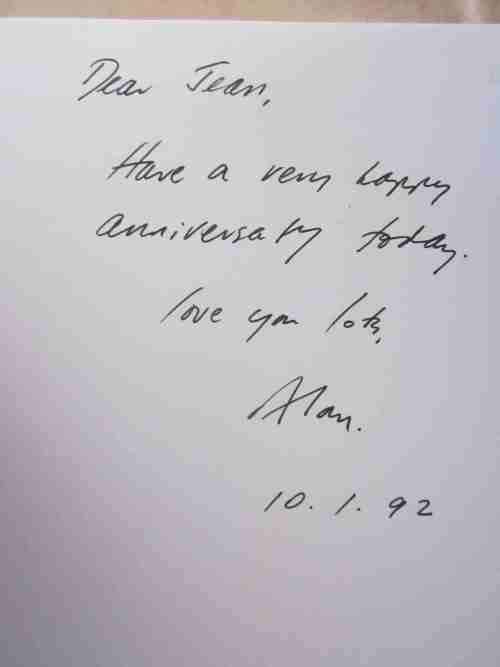 Dear Jean,
Have a very happy
anniversary today.
love you lots,
Alan.
10.1.92